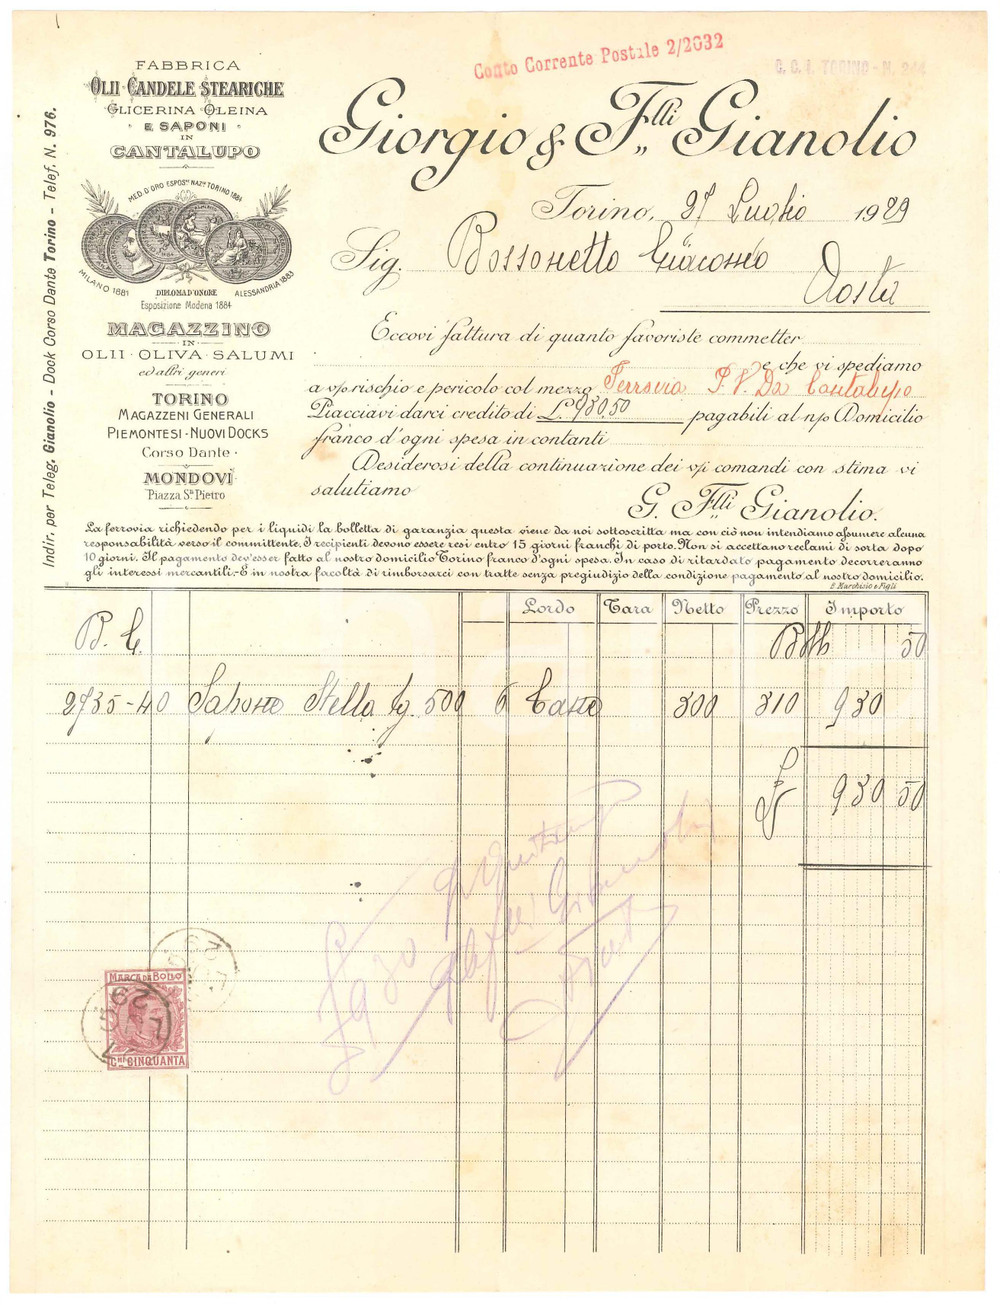 Conto Corrente Postale 2/2032
C. C. I. TORINO - N. 244
FABBRICA
OLII CANDELE STEARICHE
GLICERINA OLEINA
E SAPONI
IN
CANTALUPO
MED. D'ORO ESPOS.NE NAZ.LE TORINO 1884
MILANO 1881
DIPLOMA D'ONORE
ALESSANDRIA 1883
Esposizione Modena 1884
MAGAZZINO
IN
OLII · OLIVA · SALUMI
ed altri generi
TORINO
MAGAZZENI GENERALI
PIEMONTESI - NUOVI DOCKS
Corso Dante
MONDOVÌ
Piazza Sn. Pietro
Indir. per Teleg. Gianolio - Dock Corso Dante Torino - Telef. N. 976.
Giorgio & F.lli Gianolio
Torino, 27 Luglio 1929
Sig. Bossonetto Giacomo
Aosta
Eccovi fattura di quanto favoriste commetter
e che vi spediamo
a v/s rischio e pericolo col mezzo Ferrovia P. V. Da Cantalupo
Piacciavi darci credito di L. 930.50 pagabili al n/o Domicilio
franco d'ogni spesa in contanti
Desiderosi della continuazione dei v/i comandi con stima vi
salutiamo
G. F.lli Gianolio.
La ferrovia richiedendo per i liquidi la bolletta di garanzia questa viene da noi sottoscritta ma con ciò non intendiamo assumere alcuna
responsabilità verso il committente. I recipienti devono essere resi entro 15 giorni franchi di porto. Non si accettano reclami di sorta dopo
10 giorni. Il pagamento dev'esser fatto al nostro domicilio Torino franco d'ogni spesa. In caso di ritardato pagamento decorreranno
gli interessi mercantili.- È in nostra facoltà di rimborsarci con tratte senza pregiudizio della condizione pagamento al nostro domicilio.
E. Marchisio e Figli
Lordo Tara Netto Prezzo Importo
B. C. 50
2735-40 Sapone Stella Kg. 500 6 Casse 300 310 930
L 930 50
MARCA DA BOLLO
C.MI CINQUANTA